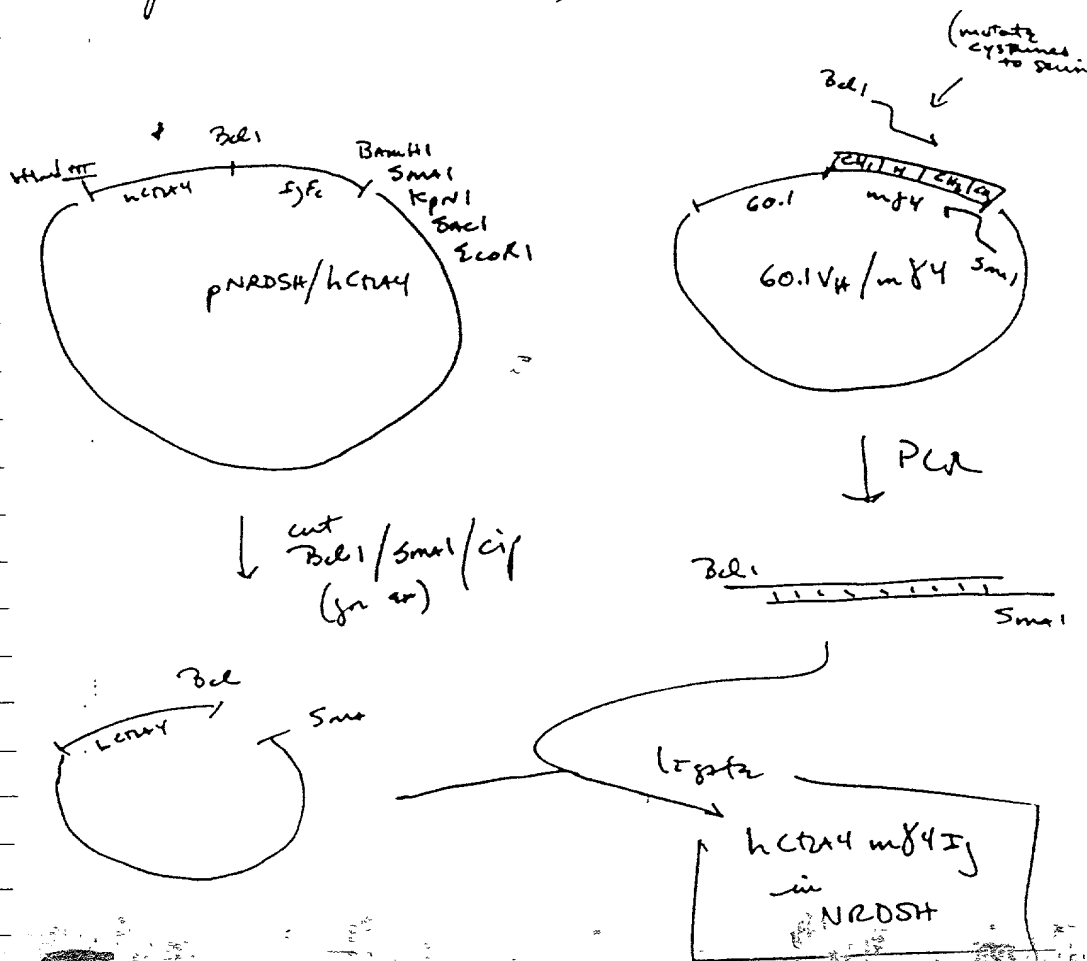 (mutate
cystines
to serin
Bcl1
Bcl1
Hind III
hCTLA4
IgFc
BamH1
SmA1
KpN1
SAC1
EcoR1
pNRDSH/hCTLA4
CH1 H CH2 CH3
60.1
mγ4
Sma1
60.1VH/mγ4
PCR
cut
Bcl1/SmA1/cip
Bcl1
SmA1
Bcl
SmA
hCTLA4
ligate
hCTLA4 mγ4Ig
in
NRDSH